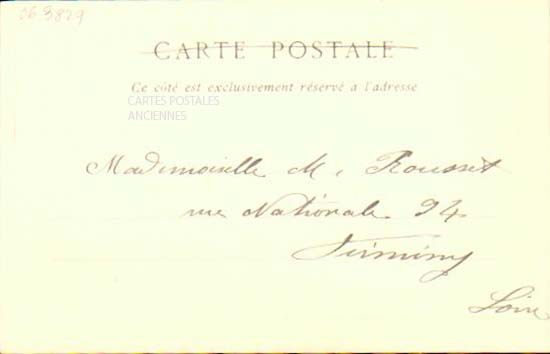 06 3829
CARTE POSTALE
Ce côté est exclusivement réservé a l'adresse
CARTES POSTALES
ANCIENNES
Mademoiselle M. Rousset
rue Nationale 94
Firminy
Loire